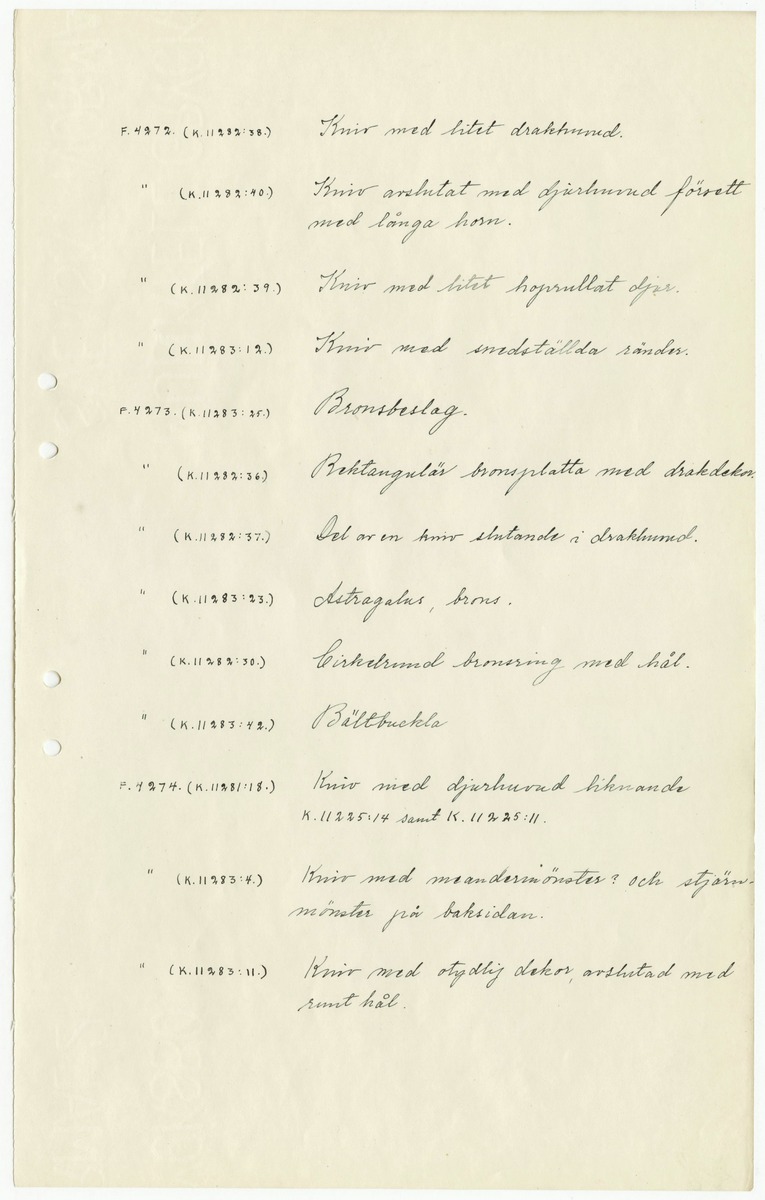 F.4272. (K.11282:38.) Kniv med litet drakhuvud.
" (K.11282:40.) Kniv avslutat med djurhuvud försett
med långa horn.
" (K.11282:39.) Kniv med litet hoprullat djur.
" (K.11283:12.) Kniv med snedställda ränder.
F.4273. (K.11283:25.) Bronsbeslag.
" (K.11282:36.) Rektangulär bronsplatta med drakdekor.
" (K.11282:37.) Del av en kniv slutande i drakhuvud.
" (K.11283:23.) Astragalus, brons.
" (K.11282:30.) Cirkelrund bronsring med hål.
" (K.11283:42.) Bältbuckla
F.4274. (K.11281:18.) Kniv med djurhuvud liknande
K.11225:14 samt K.11225:11.
" (K.11283:4.) Kniv med meandermönster? och stjärn-
mönster på baksidan.
" (K.11283:11.) Kniv med otydlig dekor, avslutad med
runt hål.